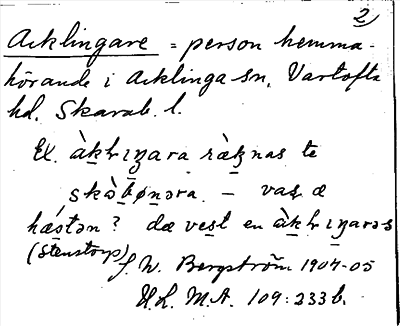 2
Acklingare = person hemma-
hörande i Acklinga sn, Vartofta
hd, Skarab. l.
Ex. àk̲lɩŋara ràk̲nas te
skòb̲ønəra. – vaʂ æ
hǽs̲tən? dæ ves̲t en àk̲lɩŋarə-s
(Stenstorp)
J. W. Bergström 1904-05
U.L.M.A. 109:233 b.